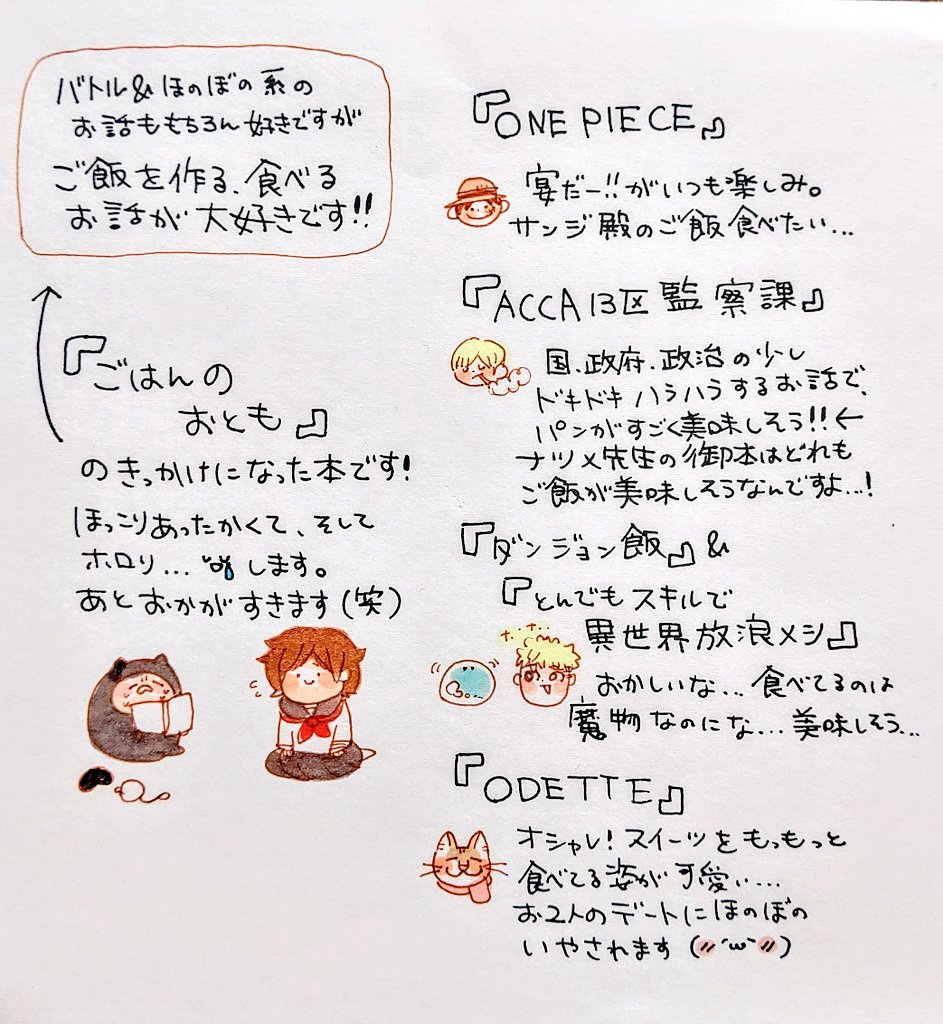 バトル&ほのぼの系の
お話ももちろん好きですが
ご飯を作る、食べる
お話が大好きです!!
『ごはんの
おとも』
のきっかけになった本です!
ほっこりあったかくて、そして
ホロリ...します。
あとおかががすきます(笑)
『ONE PIECE』
宴だー!!がいつも楽しみ。
サンジ殿のご飯食べたい...
『ACCA13区監察課』
国、政府、政治の少し
ドキドキハラハラするお話で、
パンがすごく美味しそう!!←
ナツメ先生の御本はどれも
ご飯が美味しそうなんですよ...!
『ダンジョン飯』&
『とんでもスキルで
異世界放浪メシ』
おかしいな...食べてるのは
魔物なのにな...美味しそう...
『ODETTE』
オシャレ!スイーツをもっもっと
食べてる姿が可愛い...
お2人のデートにほのぼの
いやされます(〃´ω`〃)